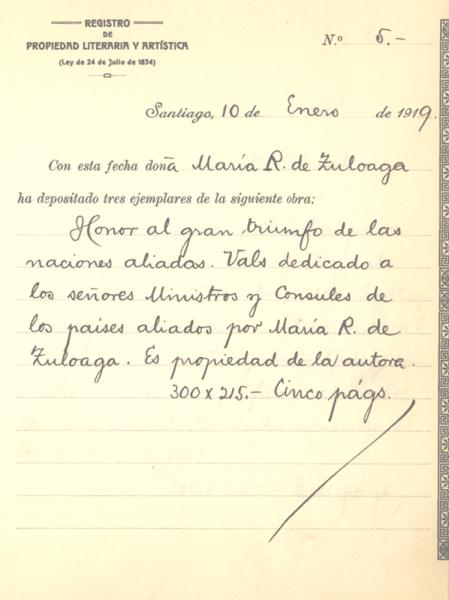 REGISTRO
DE
PROPIEDAD LITERARIA Y ARTÍSTICA
(Ley de 24 de Julio de 1834)
N.º 5.-
Santiago, 10 de Enero de 1919.
Con esta fecha doña María R. de Zuloaga
ha depositado tres ejemplares de la siguiente obra:
Honor al gran triumfo de las
naciones aliadas. Vals dedicado a
los señores Ministros y Consules de
los paises aliados por María R. de
Zuloaga. Es propiedad de la autora.
300 x 215.- Cinco págs.